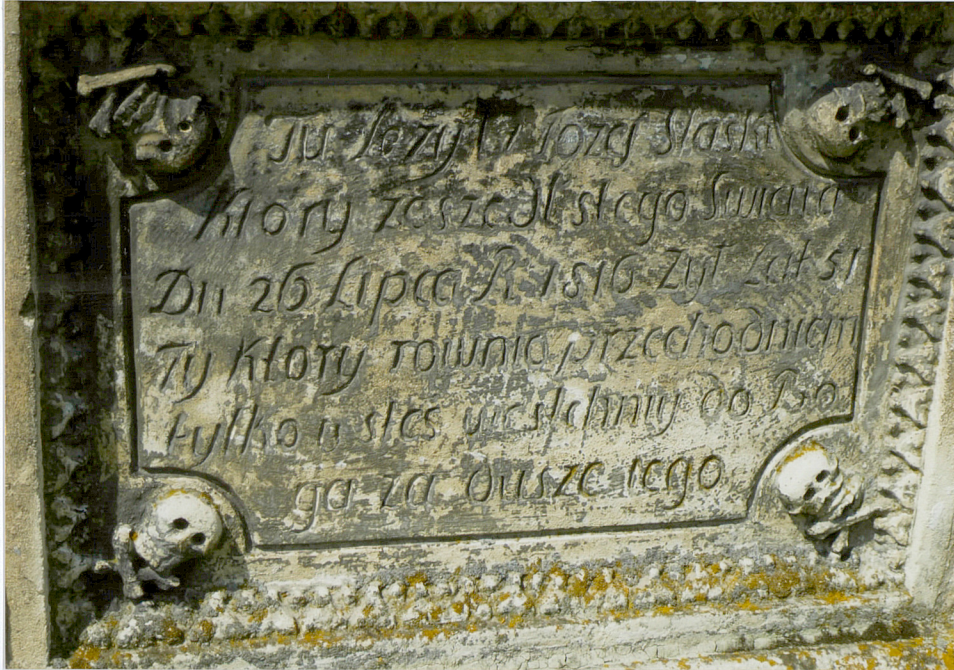 Tu lezy Iozej Slaski
Ktory zeszedl stego Swiata
Dn 26 Lipca R 1816 zyl Lat 51
Ty Ktory rownia przechodniam
tylko u stes westchniy do Bo
ga za dusze iego